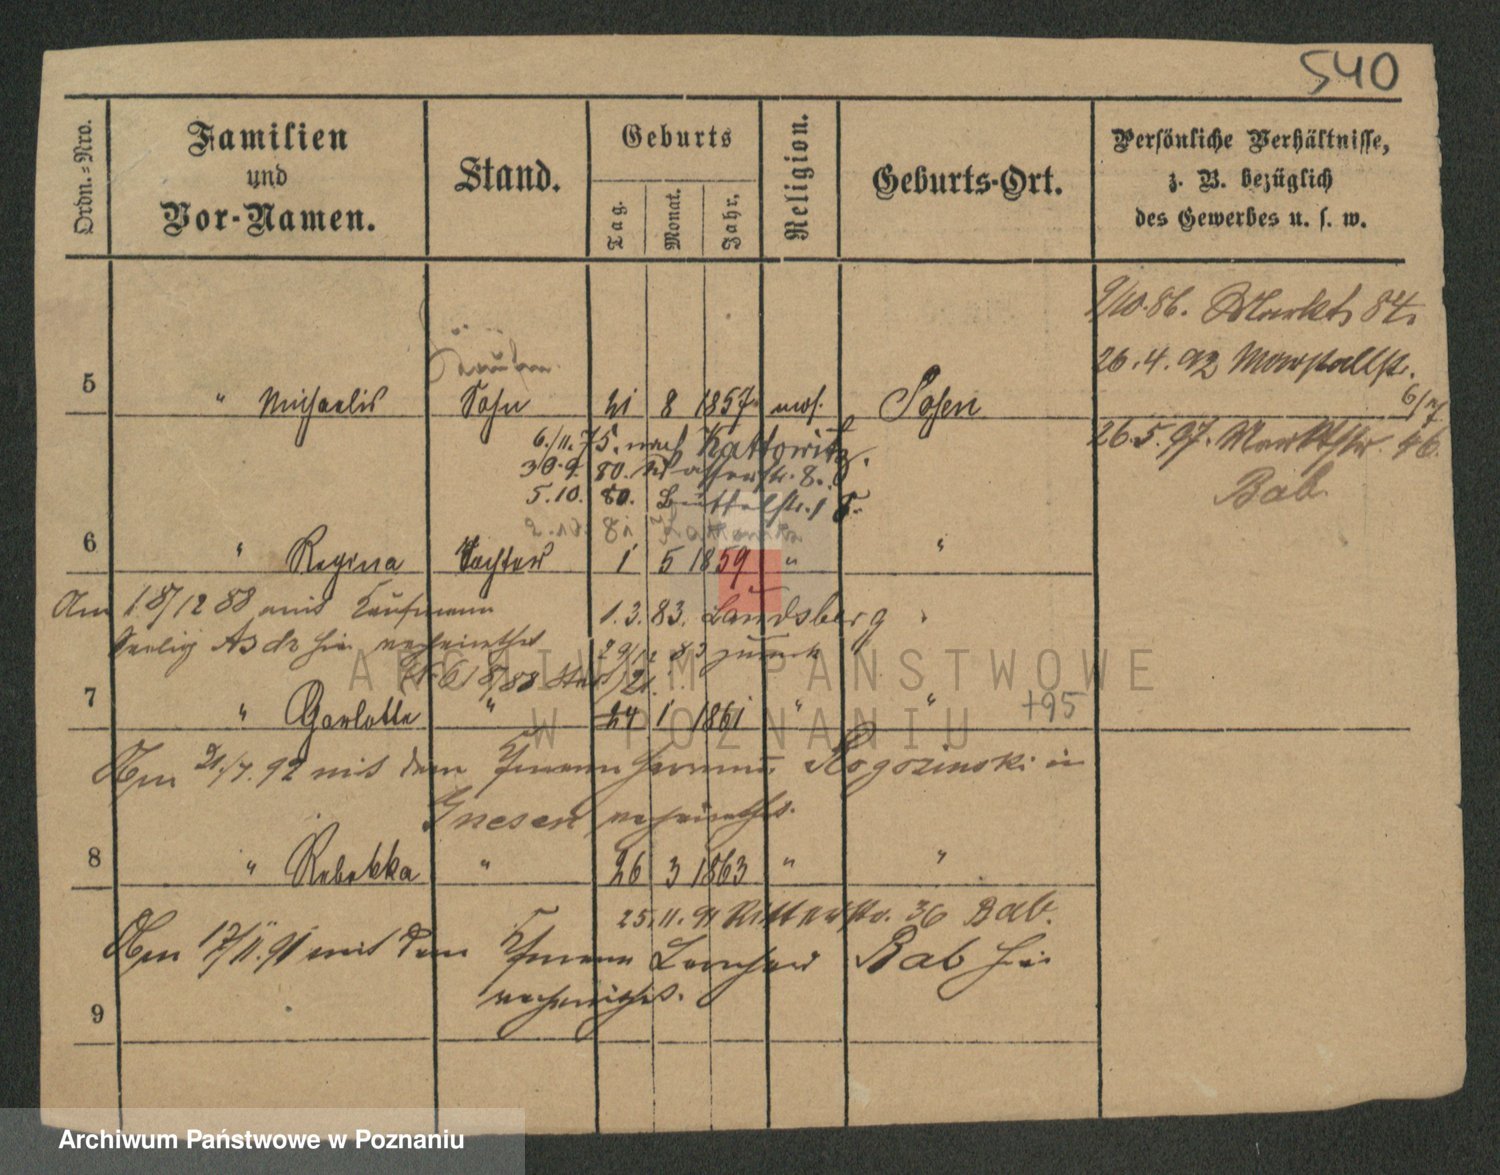 540
Ordn.-Nro.
Familien
und
Vor-Namen.
Stand.
Geburts
Tag.
Monat.
Jahr.
Religion.
Geburts-Ort.
Persönliche Verhältnisse,
z. B. bezüglich
des Gewerbes u. s. w.
9/10.86. Markt 84.
26.4.92 Marstallstr.
6/7
5 " Michaelis Sohn 21 8 1857 mos. Posen
26.5.97. Marktstr. 46.
Bab
6./11.75. nach Kattowitz.
30.9. 80. Wasserstr. 8.
5.10. 80. Büttelstr.
2.10. 81 Kattowitz
6 " Regina Tochter 1 5 1859 " "
Am 18/12 88 mit Kaufmann
1.3.83. Landsberg
Seelig hier verheirathet
29/12 83 zurück
7 " Charlotte " 24 1 1861 " "
+95
Am 21/7.92 mit dem Kfmann Rogozinski in
Gnesen verheirathet.
8 " Rebekka " 26 3 1863 " "
25.11.91 Ritterstr. 36 Bab.
Am 17/11.91 mit dem Kfmann Bab hier
verheirathet.
9
ARCHIWUM PAŃSTWOWE
W POZNANIU
Archiwum Państwowe w Poznaniu